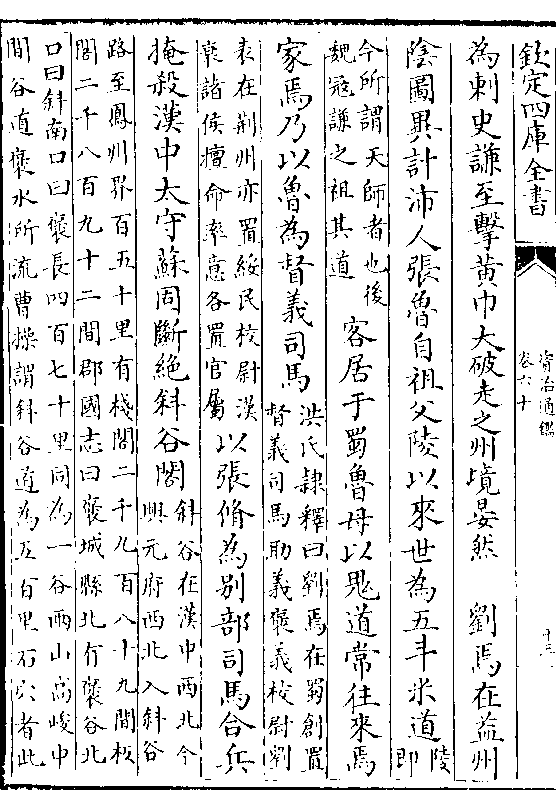 欽定四庫全書
資治通鑑
卷六十
十三
為刺史謙至擊黄巾大破走之州境晏然　劉焉在益州
陰圖異計沛人張魯自祖父陵以來世為五斗米道
陵
即
今所謂天師者也後
魏寇謙之祖其道
客居于蜀魯母以鬼道常往來焉
家焉乃以魯為督義司馬
洪氏隸釋曰劉焉在蜀創置
督義司馬助義褒義校尉劉
表在荆州亦置綏民校尉漢
衰諸侯擅命率意各置官屬
以張脩為别部司馬合兵
掩殺漢中太守蘇固斷絶斜谷閣
斜谷在漢中西北今
興元府西北入斜谷
路至鳳州界百五十里有棧閣二千九百八十九間板
閣二千八百九十二間郡國志曰褒城縣北有褒谷北
口曰斜南口曰褒長四百七十里同為一谷兩山高峻中
間谷道褒水所流曹操謂斜谷道為五百里石穴者此